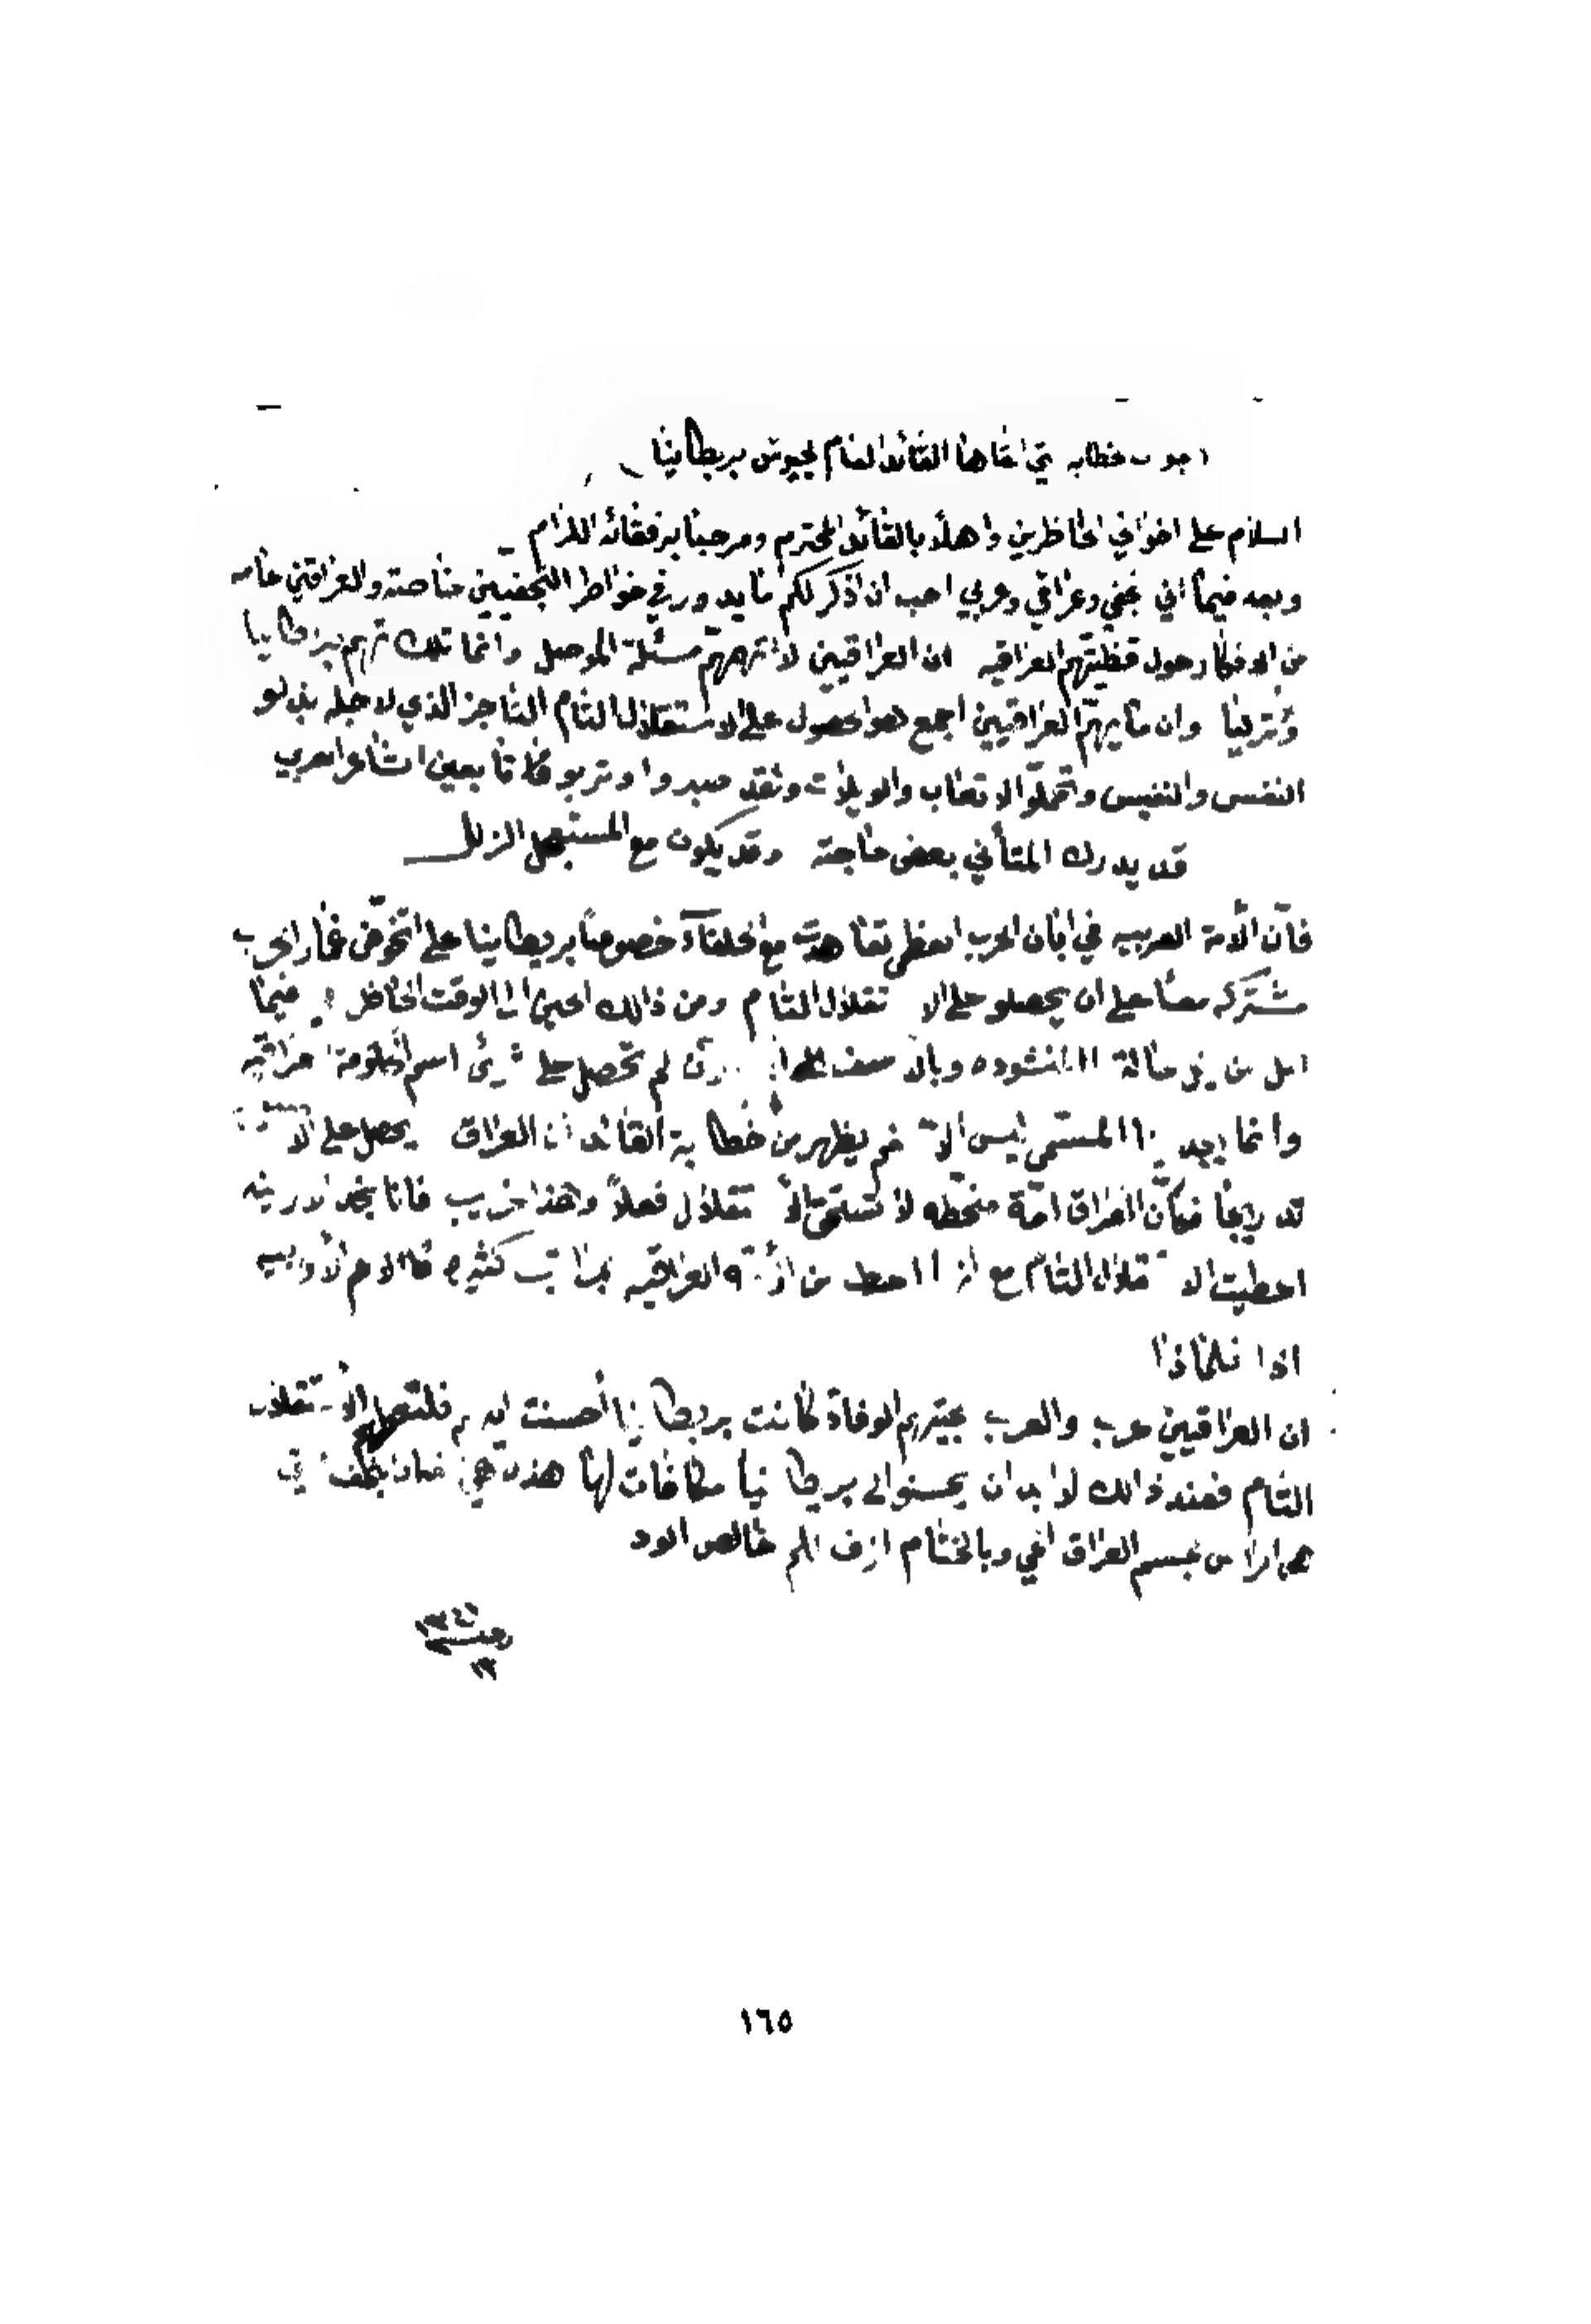 جوب خطابه تي القاها القائد العام لجيوش بريطانيا
السلام على اخواني الحاظرين واهلاً بالقائد المحترم ومرحبا برفقائه الكرام
وبعد فيما اني نجفي وعراقي وعربي احب ان اذكر لكم ما يدور في خواطر النجفيين خاصة والعراقيين عامه
من الافكار حول قظيتهم العراقيه ان العراقيين لا تهمهم مسئلة الموصل وانما تلك تهم بريطانيا
وتركيا وان ما يهم العراقيين اجمع هو الحصول على الاستقلال التام الناجز الذي لاجله بذلو
النفس والنفيس وتحملو الاتعاب والويلات ولقد صبروا وتربو فكانا بعين الشاعر العربي
قد يدرك المتأني بعض حاجته وقد يكون مع المستعجل الزلل
فأن الأمة العربيه في ابان الحرب العظمى تعاهدت مع الحلفآء خصوصاً بريطانيا على تخوض غمار الحرب
مشتركه معها على ان يحصلو على الا تقلال التام ومن ذالك الحين الى الوقت الحاظر فيما
امل من في ضالة المنشوده وبالا سف لم تحصل على شيئ اسم حكومة عراقيه
وانما يوجد المسمى ليس الا ثم يظهر من خطابة القائد ان العراق يحصل على الا
تدريجاً فكأن العراق امة منحطه لا تستحق الا تقلال فعلاً وهذا غريب فانا نجد
اعطيت الا تقلال التام مع انها احط من العراقيه بمراتب كثيره
اذا فلماذا
ان العراقيين عرب والعرب ميزتهم الوفاء كانت بريطانيا احسنت اليهم فلتعطهم الاستقلال
التام فعند ذالك لابد ان يحسنو الى بريطانيا مكافات لها هذه هي في
من جسم العراق وبالختام ازف لكم خالص الود
١٦٥